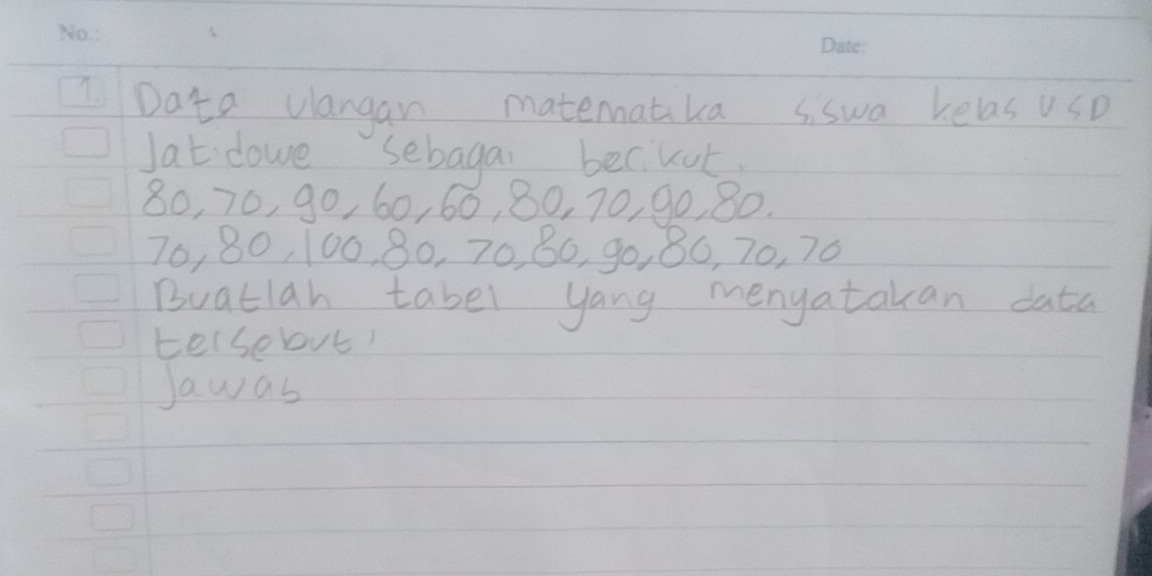 No.:
Date:
1. Data ulangan matematika siswa kelas V SD
Jatidowe sebagai berikut.
80, 70, 90, 60, 60, 80, 70, 90, 80.
70, 80, 100, 80, 70, 80, 90, 80, 70, 70
Buatlah tabel yang menyatakan data
tersebut!
Jawab